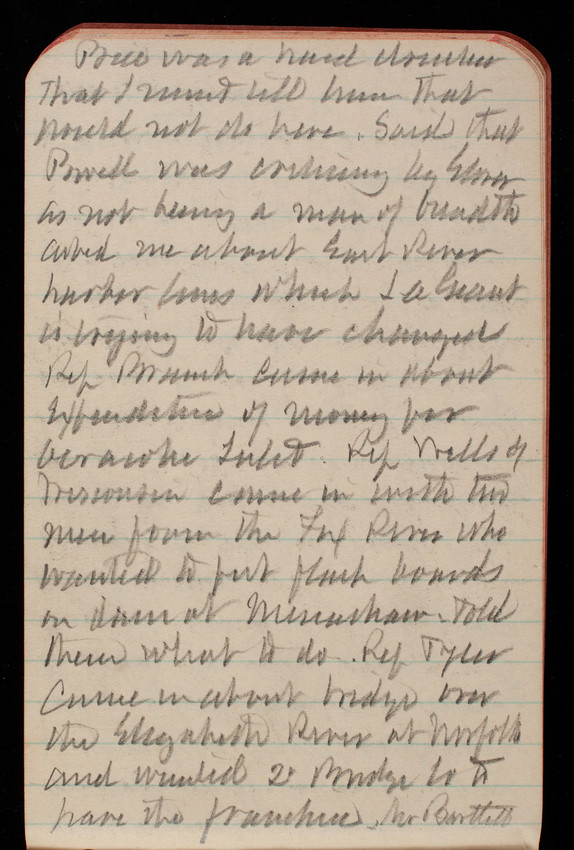 Price was a hard drinker
that I must tell him that
would not do here. Said that
Powell was criticised by
as not being a man of breadth
asked me about East River
harbor lines which Le Grant
is trying to have changed
Rep Branch came in about
Expenditure of money for
Ocracoke Inlet. Rep Wells of
Wisconsin came in with two
men from the Fox River who
wanted to put flash boards
on dam at Menashaw. Told
them what to do. Rep Tyler
came in about bridge over
the Elizabeth River at Norfolk
and wanted Bridge Co to
have the franchise. Mr Bartlett